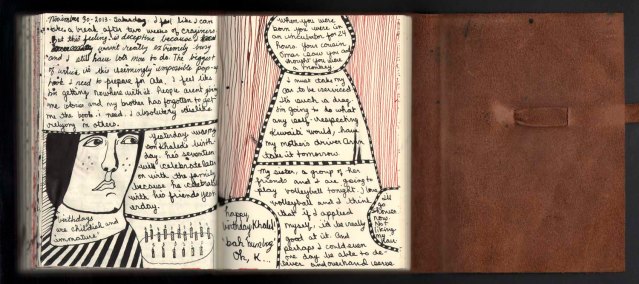 November 30 - 2013. Saturday. I feel like I can
take a break after two weeks of craziness.
But this feeling is deceptive because I
wasn't really extremely busy
and I still have lots more to do. The biggest
of which is this seemingly impossible pop-up
book I need to prepare for Ala. I feel like
I'm getting nowhere with it. People aren't giving
me stories and my brother has forgotten to get
me the book I need. I absolutely dislike
relying on others.
Yesterday was my
son Khaled's birth-
day. his seventeen
will celebrate later
on with the family
because he celebrated
with his friends yest-
erday.
"birthdays
are childish and
immature"
When you were
born you were in
an incubator for 24
hours. Your cousin
Omar saw you and
thought you were
a monkey
I must take my
car to be serviced
It's such a drag.
I'm going to do what
any self-respecting
Kuwaiti would, have
my mother's driver
take it tomorrow
My sister, a group of her
friends and I are going to
play volleyball tonight. I love
volleyball and I think
that if I applied
myself, I'd be really
good at it. And
perhaps I could even
one day be able to de-
liver an overhand serve
happy
birthday Khaled
"bah humbug"
Oh, K...
I'll
go
shower
now.
Not
liking
my
hair